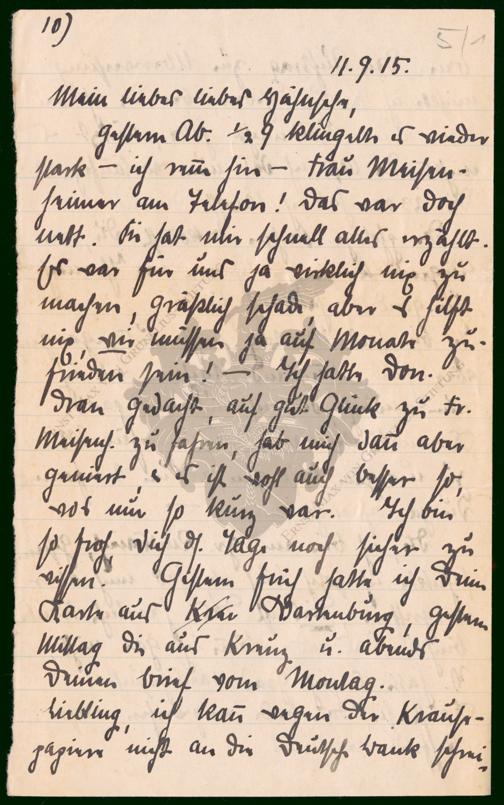 10)
5/1
11.9.15.
Mein liebes liebes Hähnsche,
gestern Ab. ½ 9 klingelte es wieder
stark – ich renn hin – Frau Meisen-
heimer am Telefon! Das war doch
nett. Sie hat mir schnell alles erzählt.
Es war für uns ja wirklich nix zu
machen, gräßlich schade, aber es hilft
nix, wir müssen ja auf Monate zu-
frieden sein! – Ich hatte Don.
dran gedacht, auf gut Glück zu Fr.
Meisenh. zu fahren, hab mich dan̅ aber
geniert, & es ist wohl auch besser so,
wos nur so kurz war. Ich bin
so froh Dich ds. Tage noch sicher zu
wissen. Gestern früh hatte ich Deine
Karte aus Krei Marienburg, gestern
Mittag die aus Kreuz u. abends
Deinen brief vom Montag.
Liebling, ich kan̅ wegen der Krause-
papiere nicht an die Deutsche bank schrei-